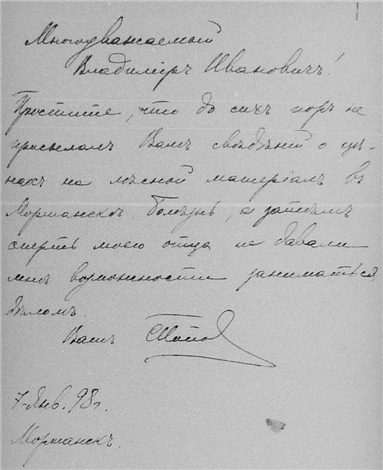 Многоуважаемый
Владимiръ Ивановичъ!
Простите, что до сихъ поръ не
присылалъ Вамъ свѣдѣнiй о цѣ-
нахъ на лѣсной матерiалъ въ
Моршанскѣ. Болѣзнь, а затѣмъ
смерть моего отца не давали
мнѣ возможности заниматься
дѣломъ.
Вашъ
7 Янв. 98 г.
Моршанскъ.